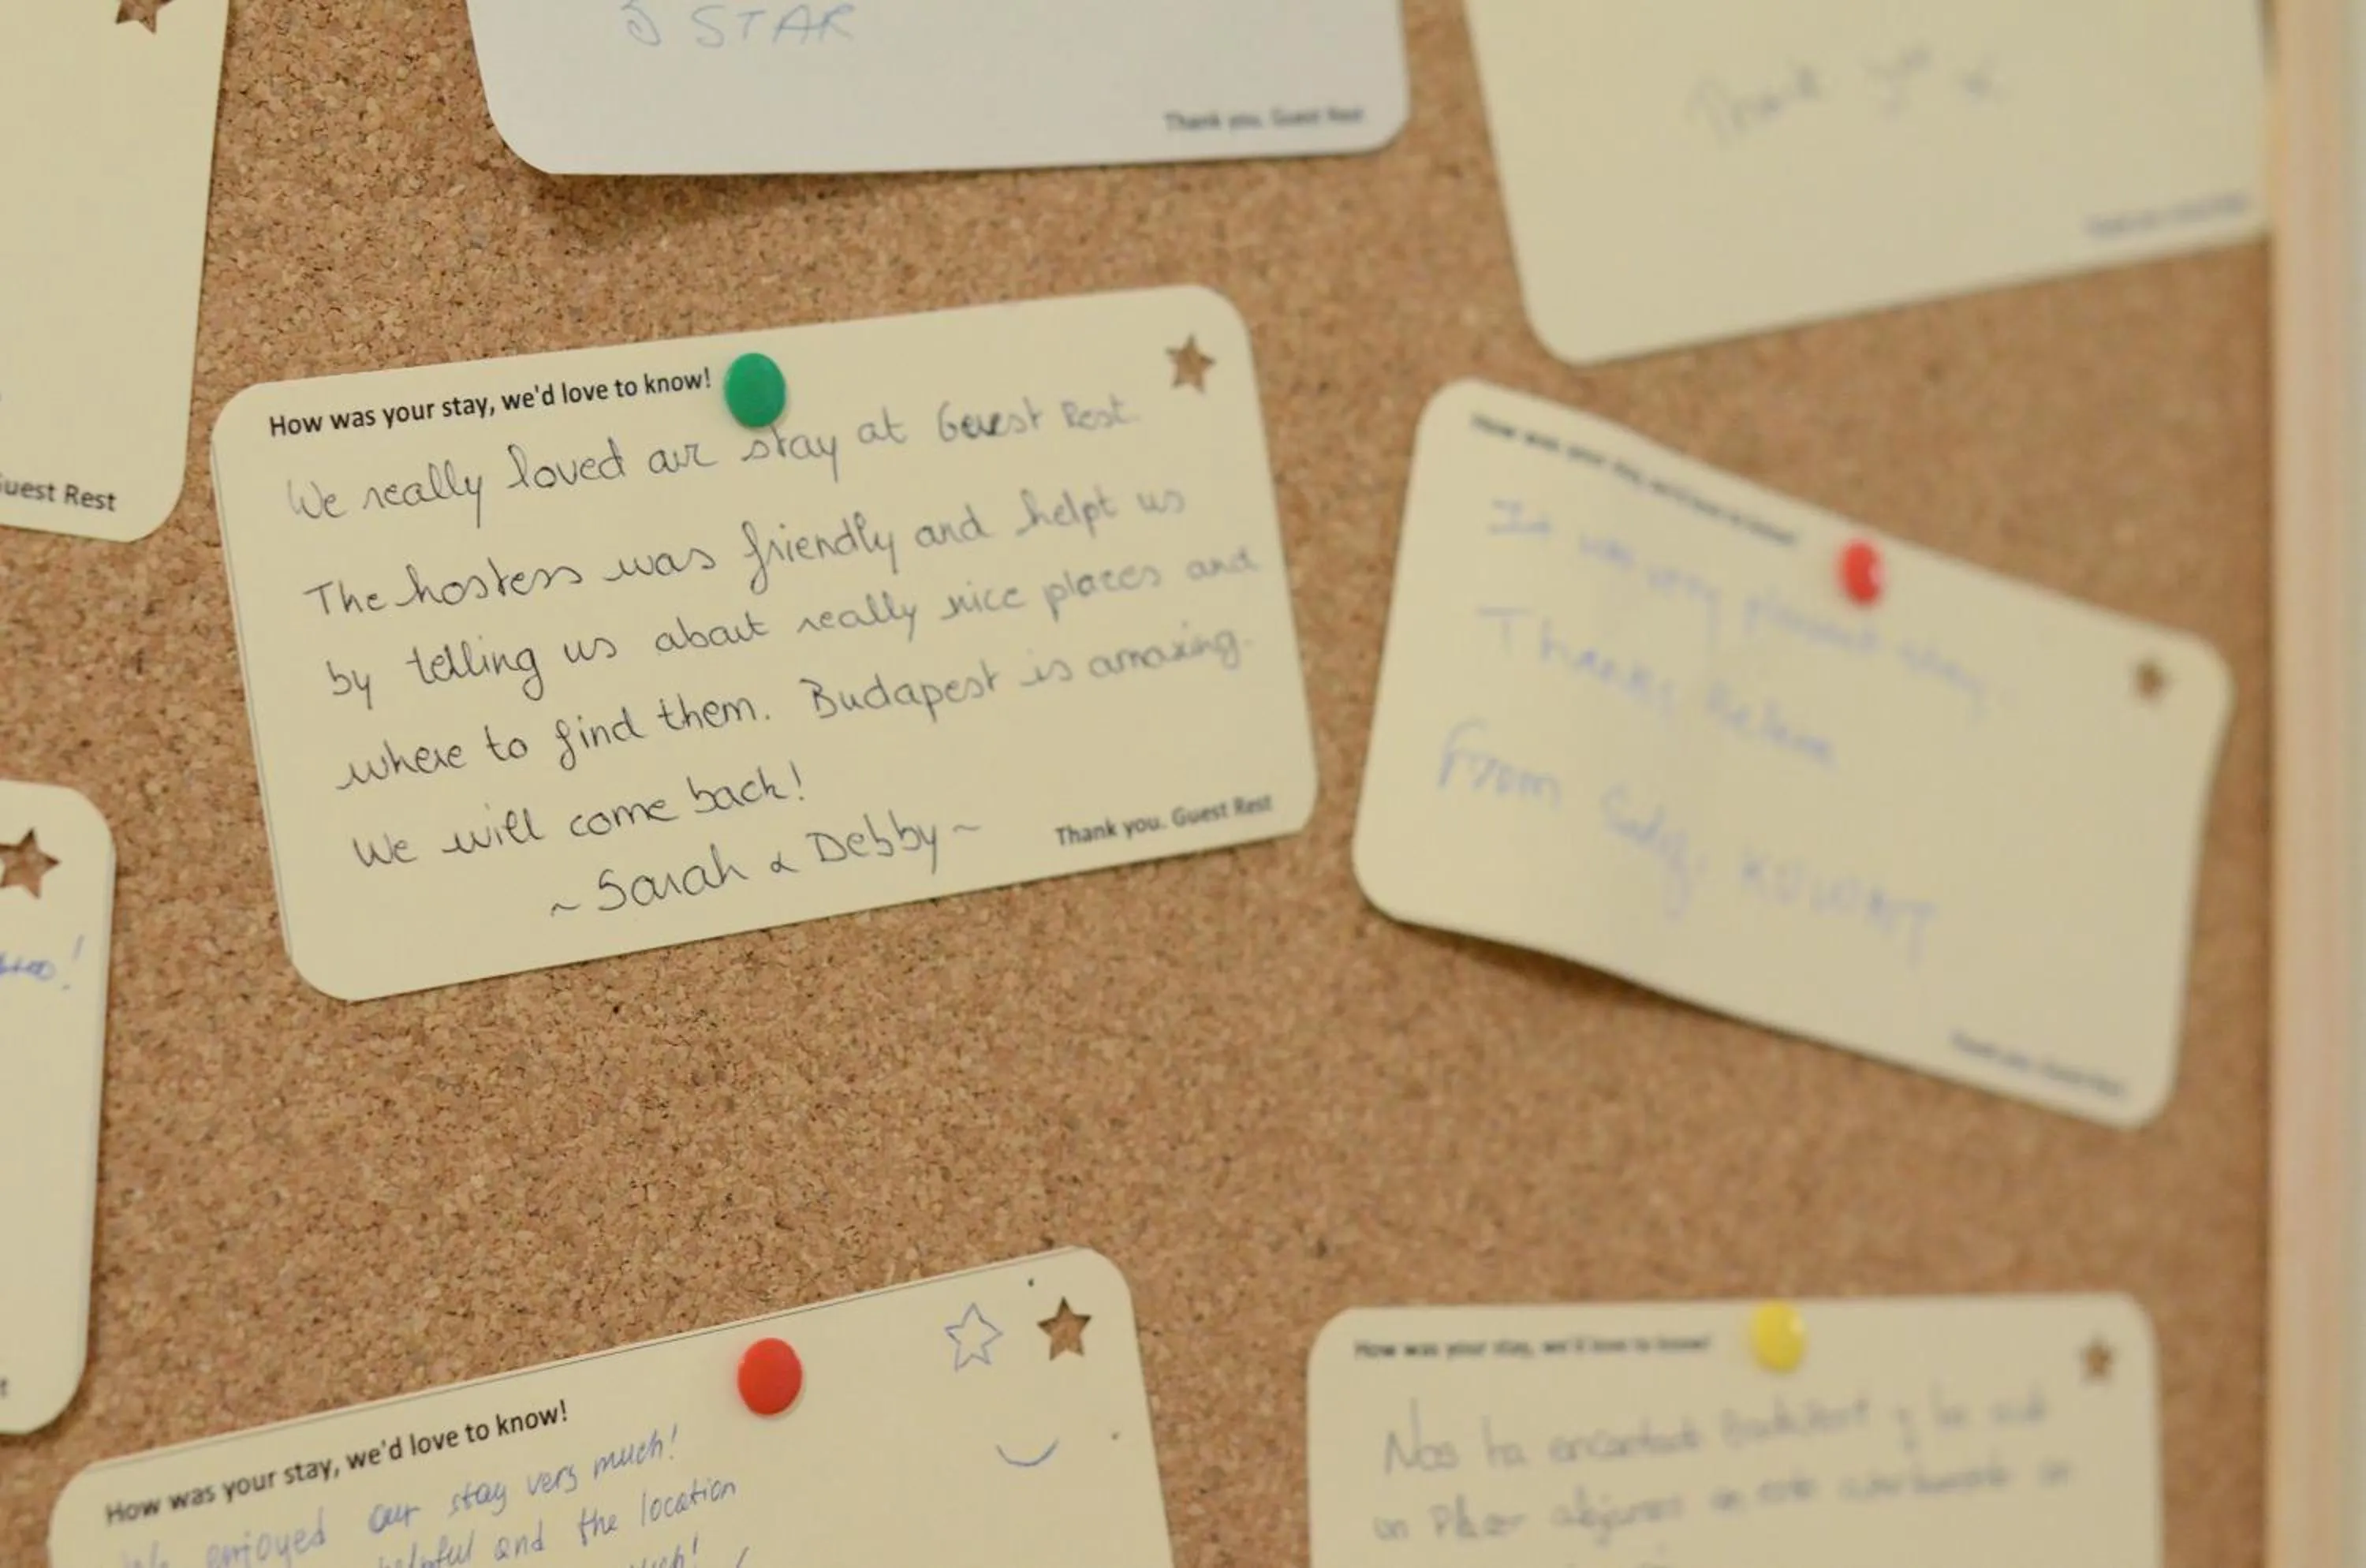 STAR
Thank you. Guest Rest
Thank you
Guest Rest
How was your stay, we'd love to know!
We really loved our stay at Guest Rest.
The hostess was friendly and helpt us
by telling us about really nice places and
where to find them. Budapest is amazing.
We will come back!
~ Sarah & Debby ~
Thank you. Guest Rest
How was your stay, we'd love to know!
It was very pleasant stay.
Thanks
From KUWAIT
Thank you. Guest Rest
How was your stay, we'd love to know!
We enjoyed our stay very much!
helpful and the location
How was your stay, we'd love to know!
Nos ha encantado y ha sido
un en